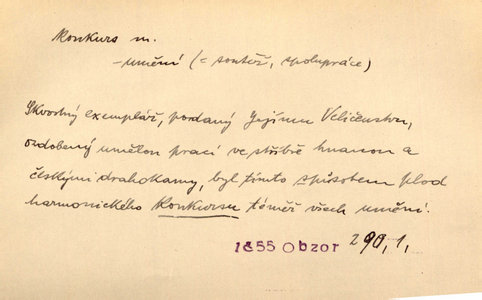 Konkurs m.
-umění (= soutěž, spolupráce)
Skvostný exemplář, podaný Jejímu Veličenstvu,
ozdobený umělou prací ve stříbře hnanou a
českými drahokamy, byl tímto způsobem plod
harmonického Konkursu téměř všech umění.
1855 Obzor 290,1,